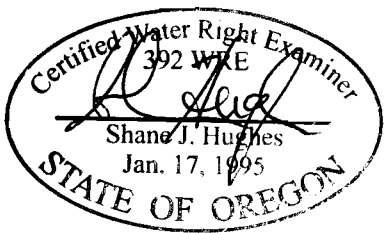 Certified Water Right Examiner
392 WRE
Shane J. Hughes
Jan. 17, 1995
STATE OF OREGON